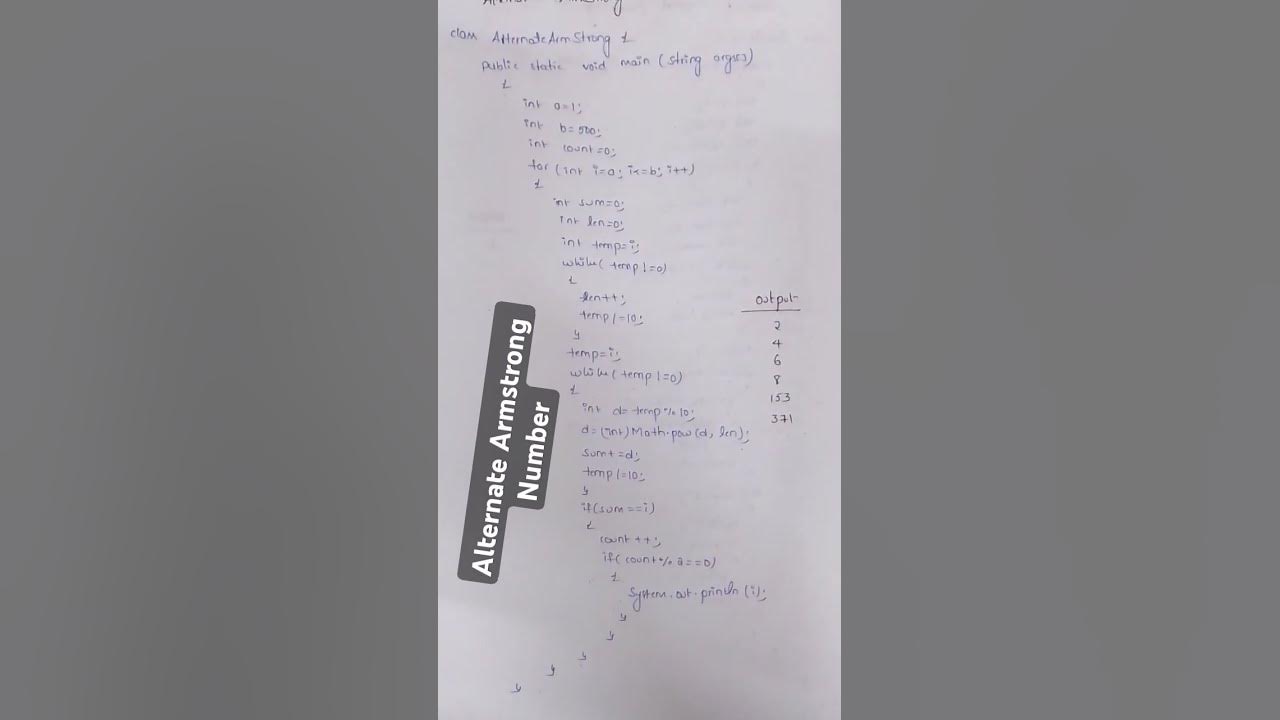 class AlternateArmStrong {
public static void main (string args[])
{
int a=1;
int b=500;
int count=0;
for (int i=a; i<=b; i++)
{
int sum=0;
int len=0;
int temp=i;
while( temp!=0)
{
len++;
temp/=10;
}
temp=i;
while( temp!=0)
{
int d= temp%10;
d=(int)Math.pow(d, len);
sum+=d;
temp/=10;
}
if(sum==i)
{
count++;
if( count%2==0)
{
System.out.println(i);
}
}
}
}
}
output
2
4
6
8
153
371
Alternate Armstrong
Number